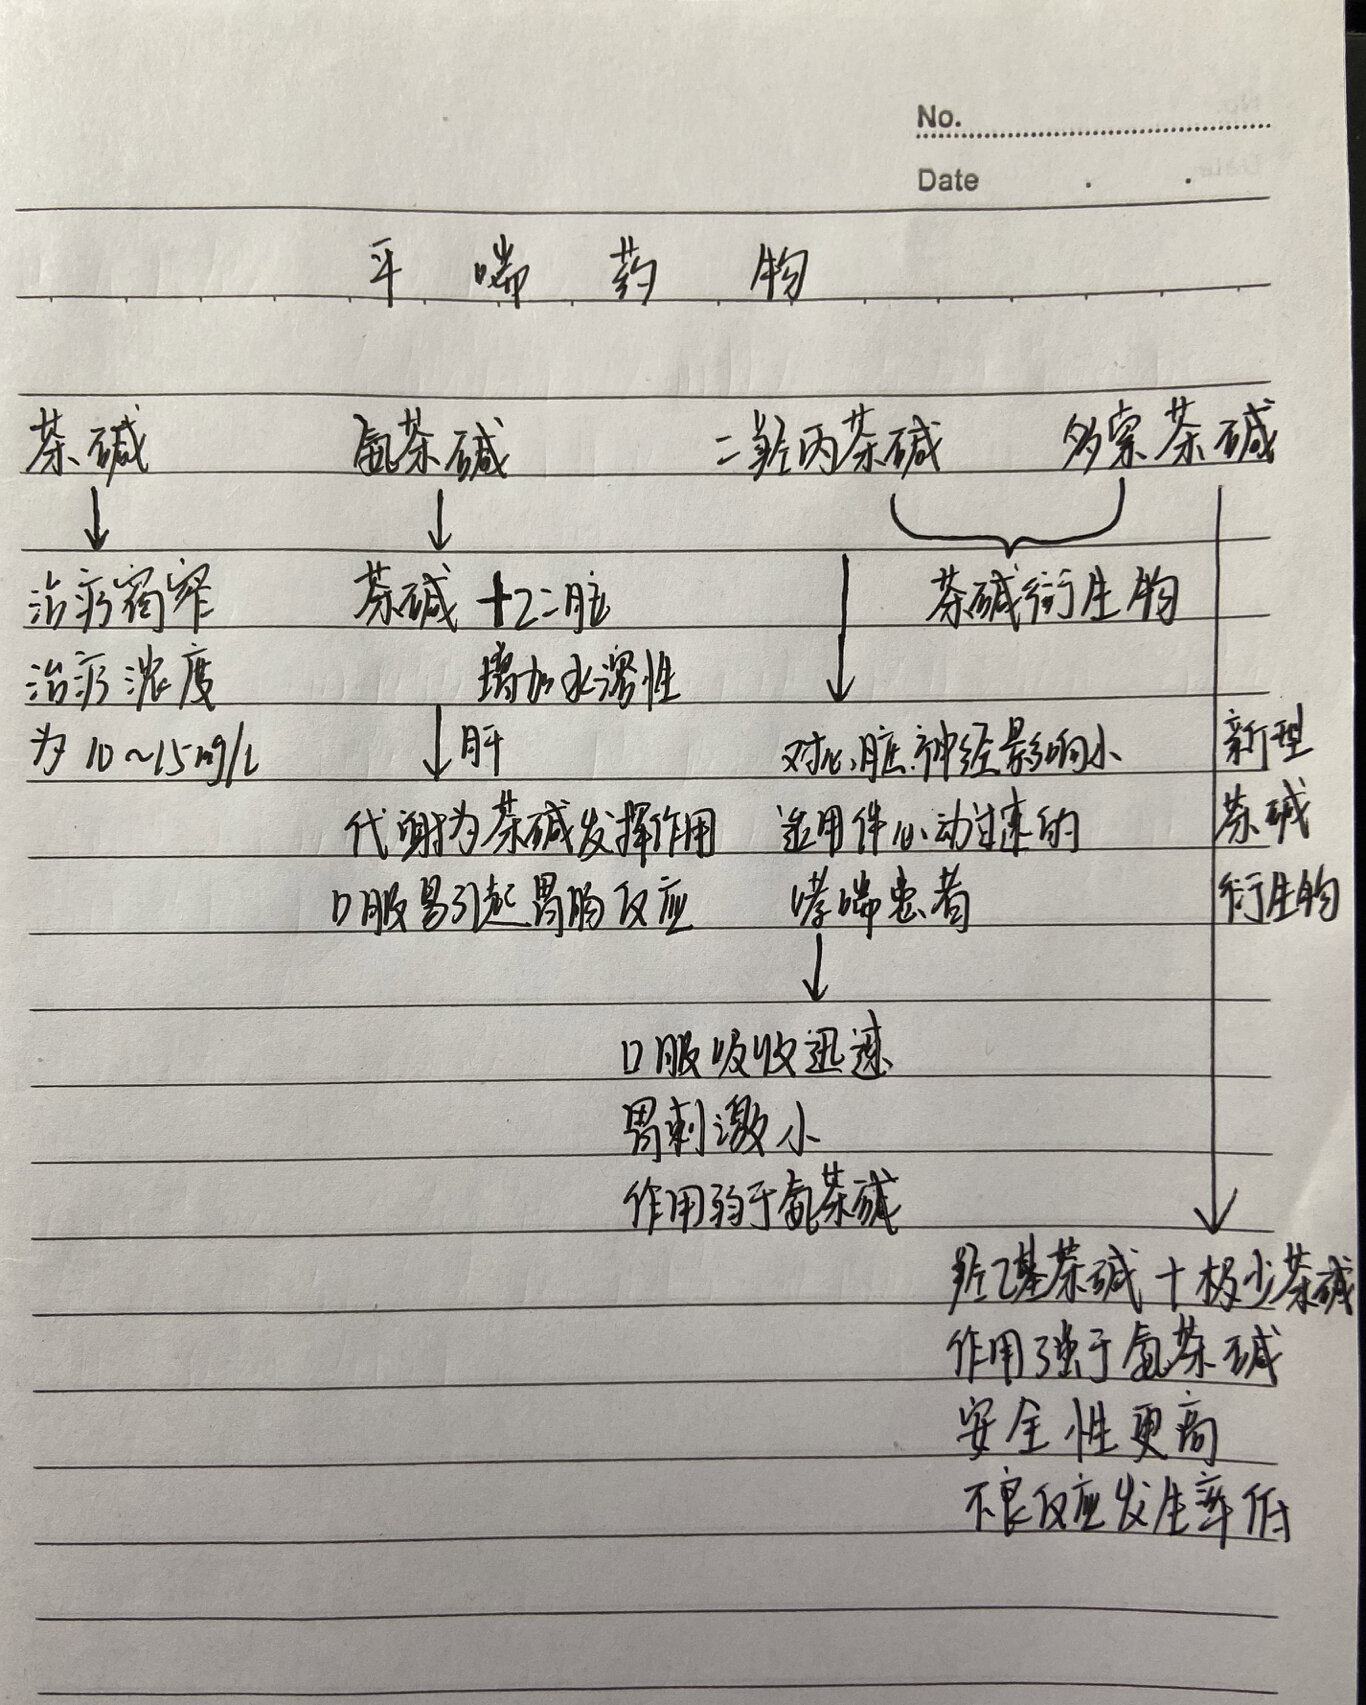 No.
Date
平喘药物
茶碱 氨茶碱 二羟丙茶碱 多索茶碱
治疗窗窄
治疗浓度
为10~15mg/L
茶碱+乙二胺
增加水溶性
肝
代谢为茶碱发挥作用
口服易引起胃肠反应
茶碱衍生物
对心脏神经影响小
适用伴心动过速的
哮喘患者
口服吸收迅速
胃刺激小
作用弱于氨茶碱
新型
茶碱
衍生物
羟乙基茶碱+极少茶碱
作用强于氨茶碱
安全性更高
不良反应发生率低